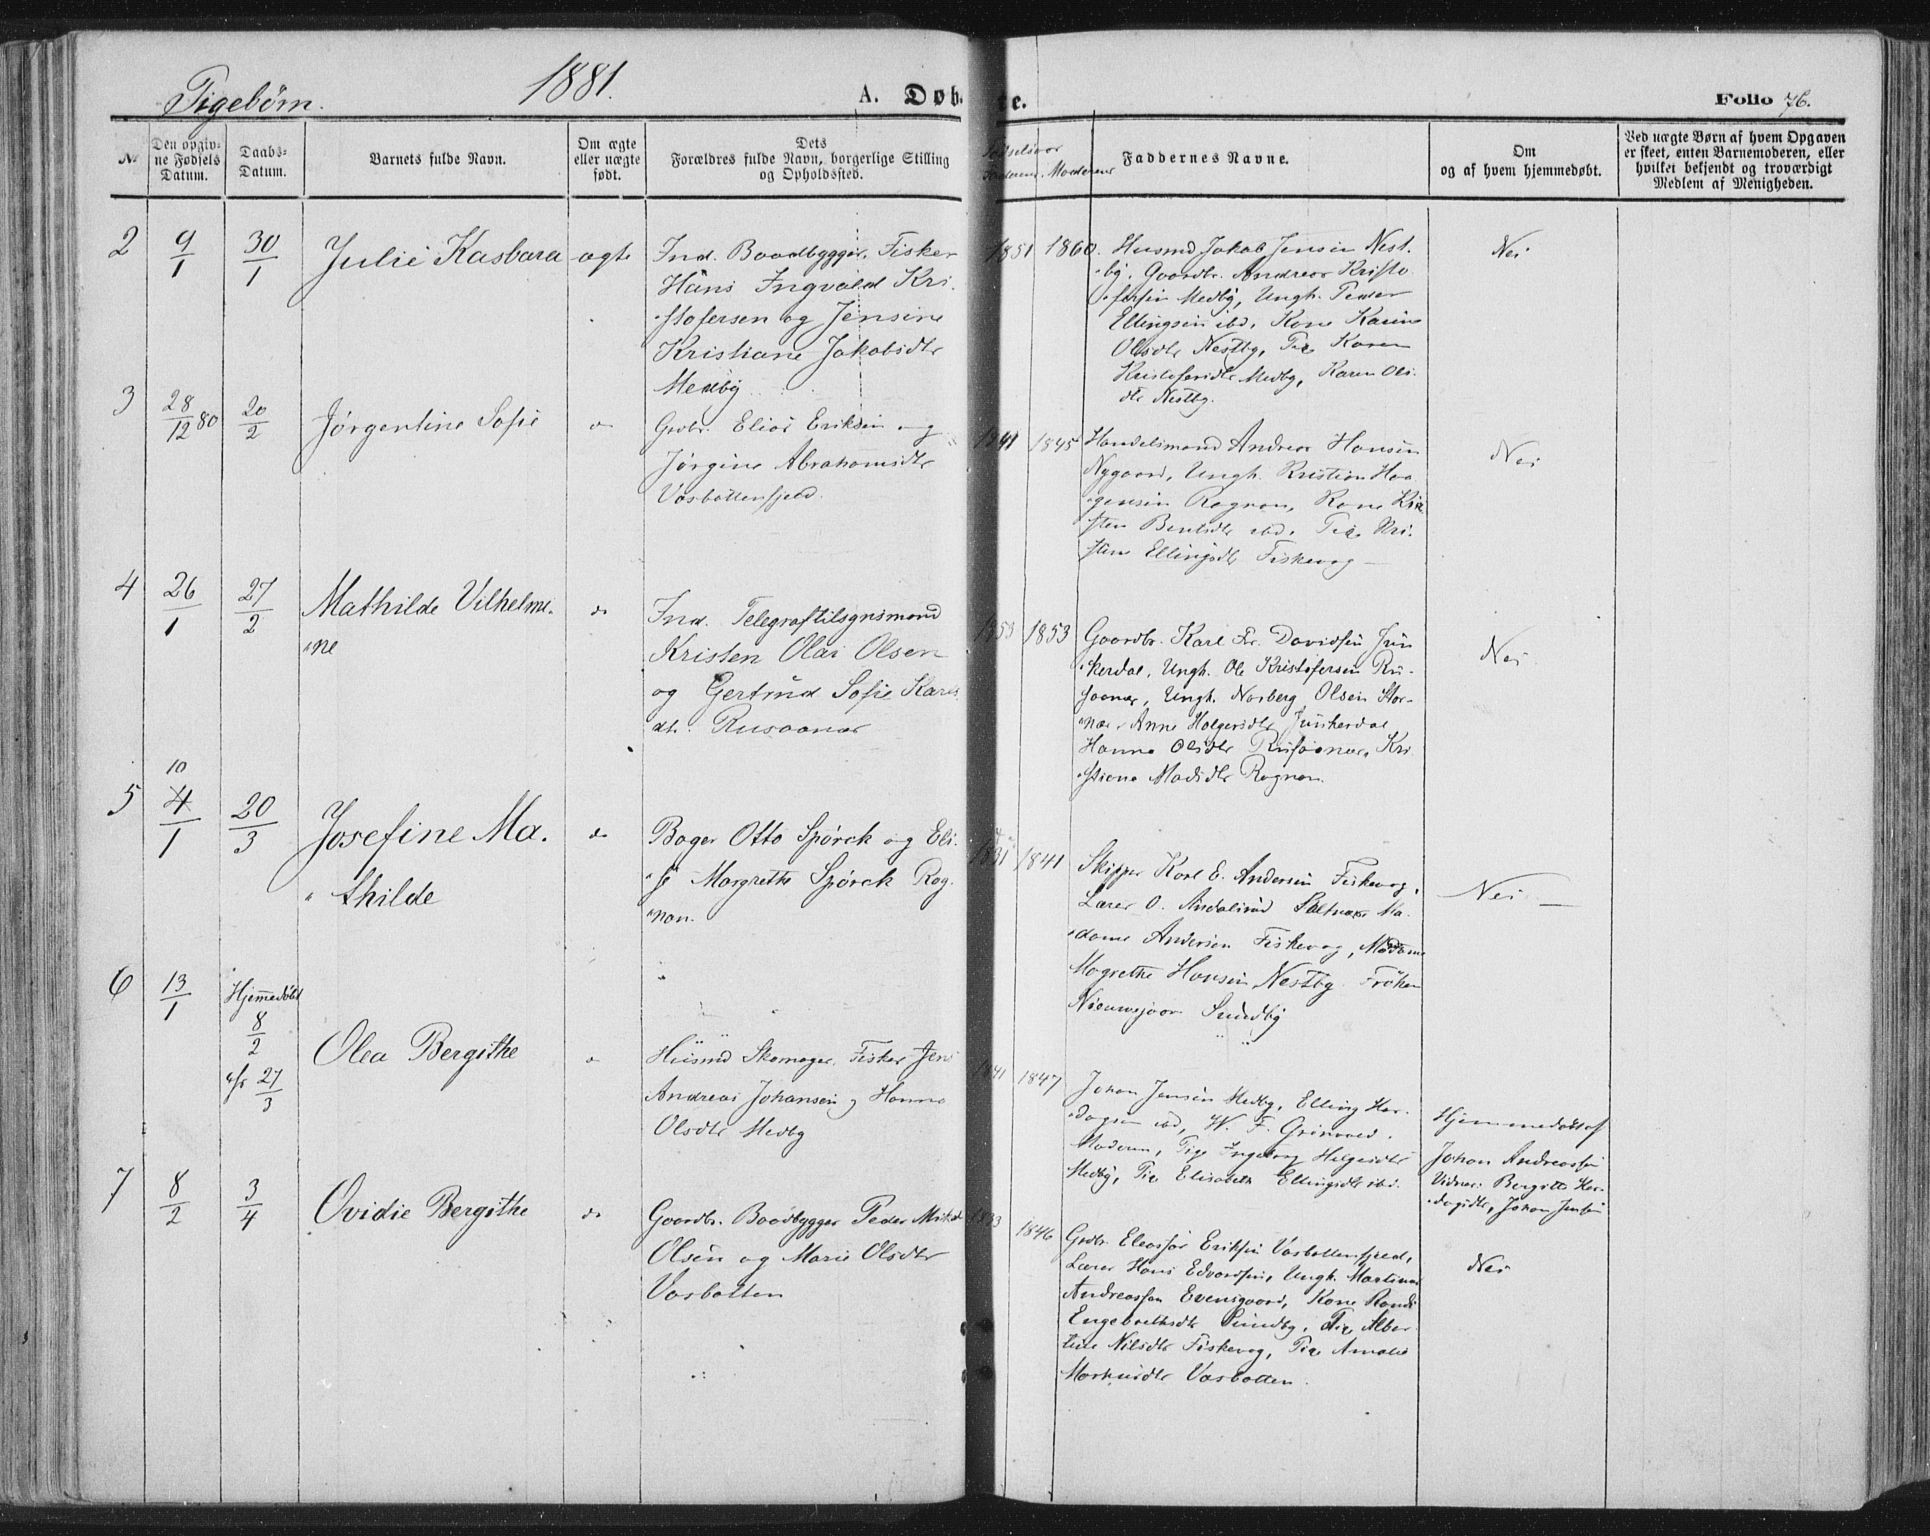 Pigebørn.
1881.
A. Døb
te.
Folio 76.
№
Den opgiv-
ne Fødsels
Datum.
Daabs-
Datum.
Barnets fulde Navn.
Om ægte
eller uægte
født.
Dets
Forældres fulde Navn, borgerlige Stilling
og Opholdssted.
Moderens
Faddernes Navne.
Om
og af hvem hjemmedøbt.
Ved uægte Børn af hvem Opgaven
er skeet, enten Barnemoderen, eller
hvilket bekjendt og troværdigt
Medlem af Menigheden.
2
9/1
30/1
Julie Kasbara
ægte
Ind. Baadbygger, Fisker
Hans Ingvald Kri-
stofersen og Jensine
Kristiane Jakobsdtr
Medby
1851
1860.
Husmd Jakob Jensen Nest-
by, Gaardbr. Andreas Kristo
fersen Medby, Ungk. Peder
Ellingsen ibd, Kone Karen
Olsdtr Nestby, Pige Karen
Kristofersdtr Medby, Karen Ols
dtr Nestby.
Nei
3
28/12 80
20/2
Jørgentine Sofie
do
Grdbr. Elias Eriksen og
Jørgine Abrahamsdtr
Vasbottenfjeld.
1845
Handelsmand Andreas Hansen
Nygaard, Ungk. Kristian Haa
gensen Rognan, Kone Kir
sten Bentsdtr ibd, Pige Kri-
stine Ellingsdtr Fiskevag
Nei
4
26/1
27/2
Mathilde Vilhelmi-
ne
do
Ind. Telegraftilsynsmand
Kristen Olai Olsen
og Gertrud Sofie Karls
dtr. Rusaanæs
1853
1853
Gaardbr. Karl Fr. Davidsen Jun
kerdal, Ungk. Ole Kristofersen Ru-
saanæs, Ungk. Norberg Olsen Stor-
næs, Anne Holgersdtr Junkerdal
Hanna Olsdtr Rusaanæs, Kri
stiane Madsdtr Rognan.
Nei
5
10
4/1
20/3
Josefine Ma-
thilde
do
Bager Otto Spørck og Eli-
se Margrethe Spørck Rog-
nan.
1831
1841
Skipper Karl E. Andersen Fiskevag,
Lærer O. Saltnæs Ma-
dame Andersen Fiskevag, Madame
Magrethe Hansen Nestby Frøken
Sundby
Nei
6
13/1
Hjemmedøbt
8/2
27/3
Olea Bergithe
do
Husmd Skomager, Fisker Jens
Andreas Johansen og Hanna
Olsdtr Medby
1841
1847
Johan Jensen Medby, Elling Har-
dagsen ibd, W. F. Grönvold.
Moderen, Pige Ingeborg Helgesdtr
Medby, Pige Elisabeth Ellingsdtr ibd.
Hjemmedøbt af
Johan Andreassen
Vidner: Bergitte Har-
dagsdtr, Johan Jensen
7
8/2
3/4
Ovidie Bergithe
do
Gaardbr. Baadbygger Peder Mikal
Olsen og Marie Olsdtr
Vasbotten
1833
1846
Grdbr. Eleasar Eriksen Vasbottenfjeld,
Lærer Hans Edvardsen, Ungk. Martinus
Andreassen Evensgaard, Kone Randi
Engebrethsdtr Sundby, Pige Alber
tine Nilsdtr Fiskevag, Pige Amalie
Markusdtr Vasbotten.
Nei